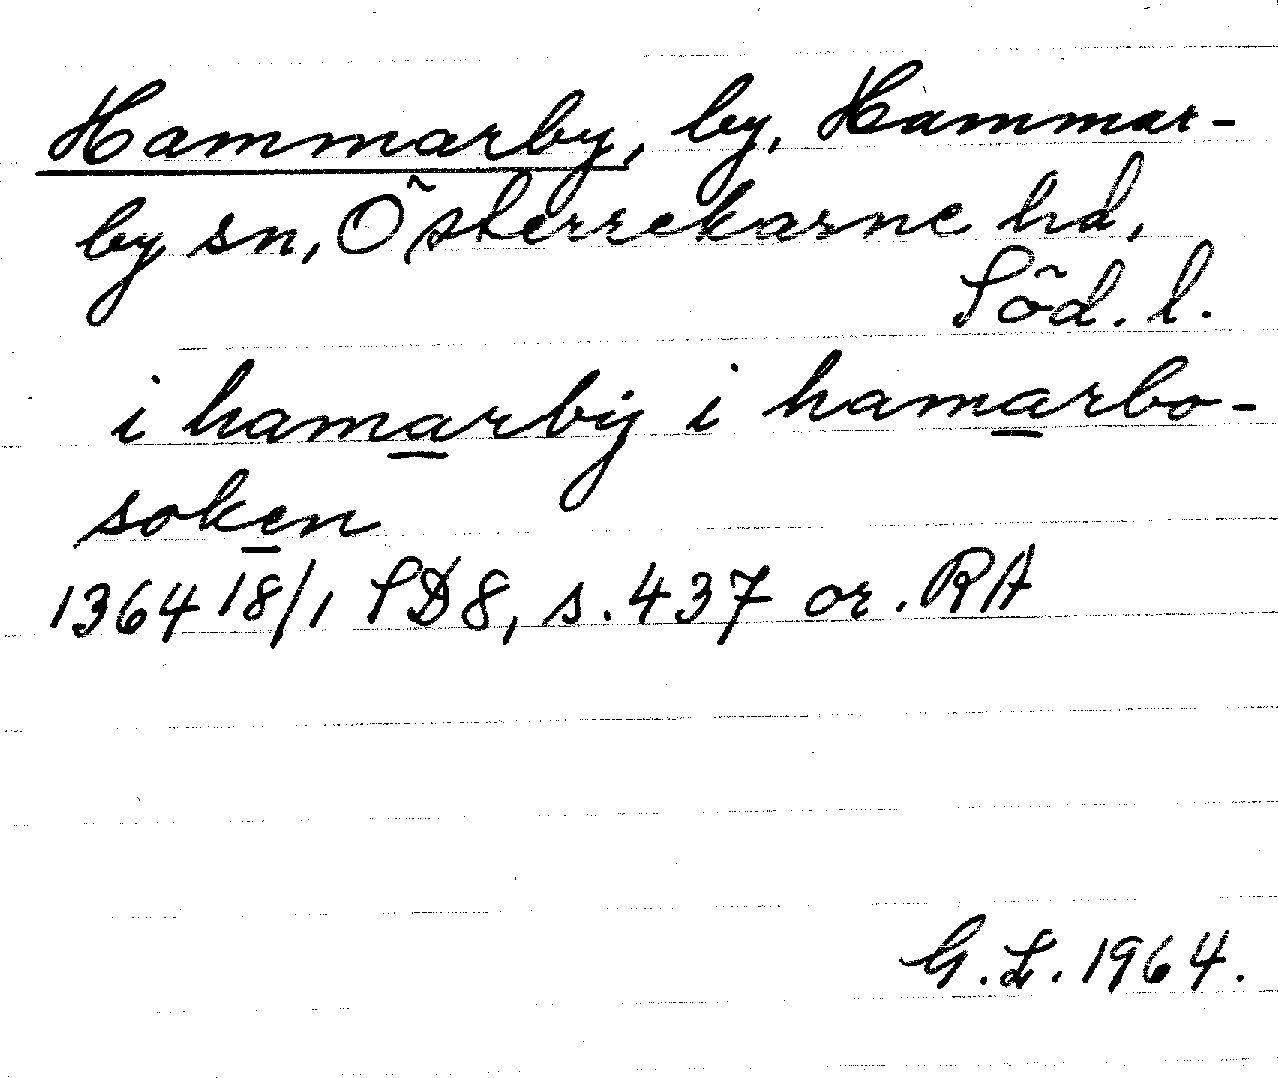 Hammarby, by, Hammar-
by sn, Österrekarne hd,
Söd. l.
i hamarbÿ i hamarbo-
soken
1364 18/1 SD8, s. 437 or. RA
G. L. 1964.